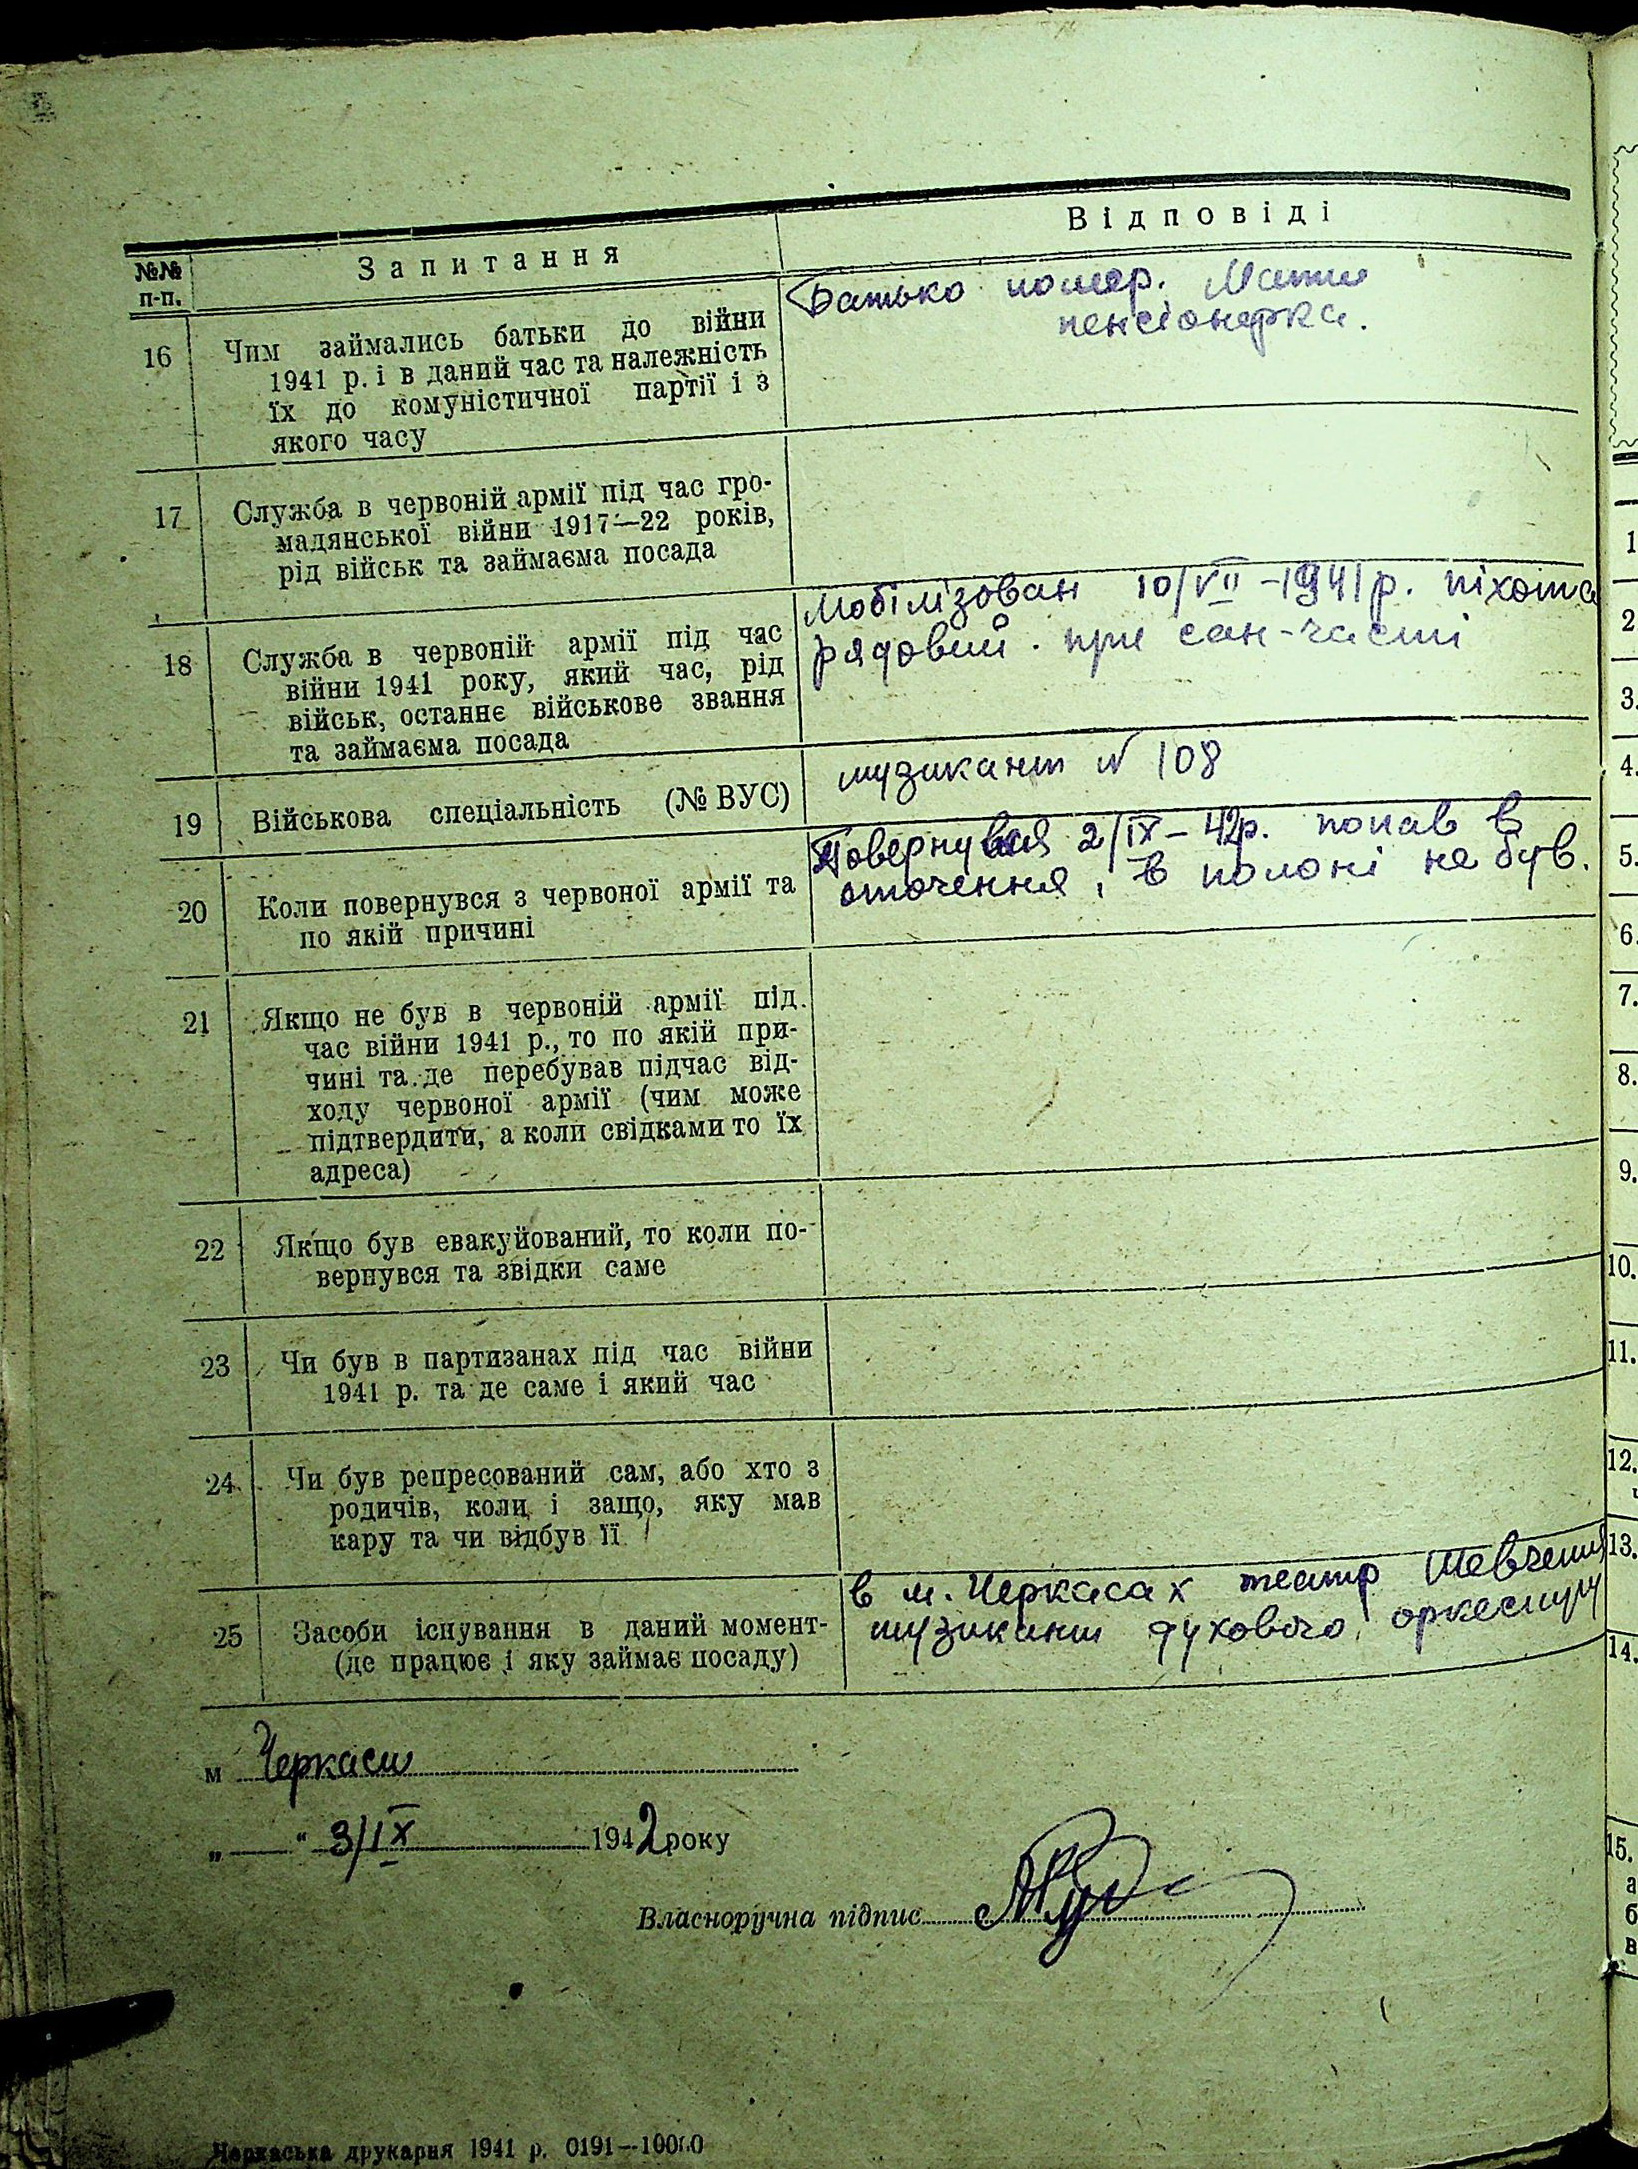 №№ п-п.
Запитання
Відповіді
16
Чим займались батьки до війни
1941 р. і в даний час та належність
їх до комуністичної партії і з
якого часу
Батько помер. Мати
пенсіонерка.
17
Служба в червоній армії під час гро-
мадянської війни 1917—22 років,
рід військ та займаєма посада
18
Служба в червоній армії під час
війни 1941 року, який час, рід
військ, останнє військове звання
та займаєма посада
Мобілізован 10/VII-1941 р. піхота
рядовий. при сан-часті
19
Військова спеціальність (№ ВУС)
музикант N 108
20
Коли повернувся з червоної армії та
по якій причині
Повернувся 2/IX-42р. попав в
оточення, в полоні не був.
21
Якщо не був в червоній армії під
час війни 1941 р., то по якій при-
чині та де перебував підчас від-
ходу червоної армії (чим може
підтвердити, а коли свідками то їх
адреса)
22
Якщо був евакуйований, то коли по-
вернувся та звідки саме
23
Чи був в партизанах під час війни
1941 р. та де саме і який час
24
Чи був репресований сам, або хто з
родичів, коли і защо, яку мав
кару та чи відбув її
25
Засоби існування в даний момент-
(де працює і яку займає посаду)
в м. Черкасах театр Шевченка
музикант духового оркестру
м Черкаси
„ “ 3/IX 1942 року
Власноручна підпис
Черкаська друкарня 1941 р. 0191—10000
1
2
3.
4.
5.
6.
7.
8.
9.
10.
11.
12.
13.
14.
15.
а
б
в